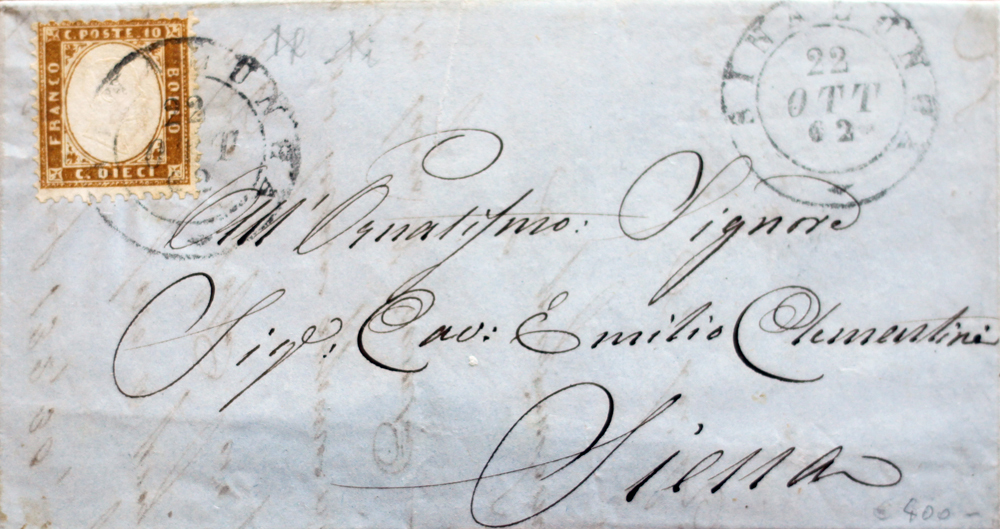 C. POSTE 10
FRANCO
BOLLO
C. DIECI
22
OTT
62
SINALUNGA
22
OTT
62
All' Ornatissmo: Signore
Sigr: Cav: Emilio Clementini
Siena
€ 400 -